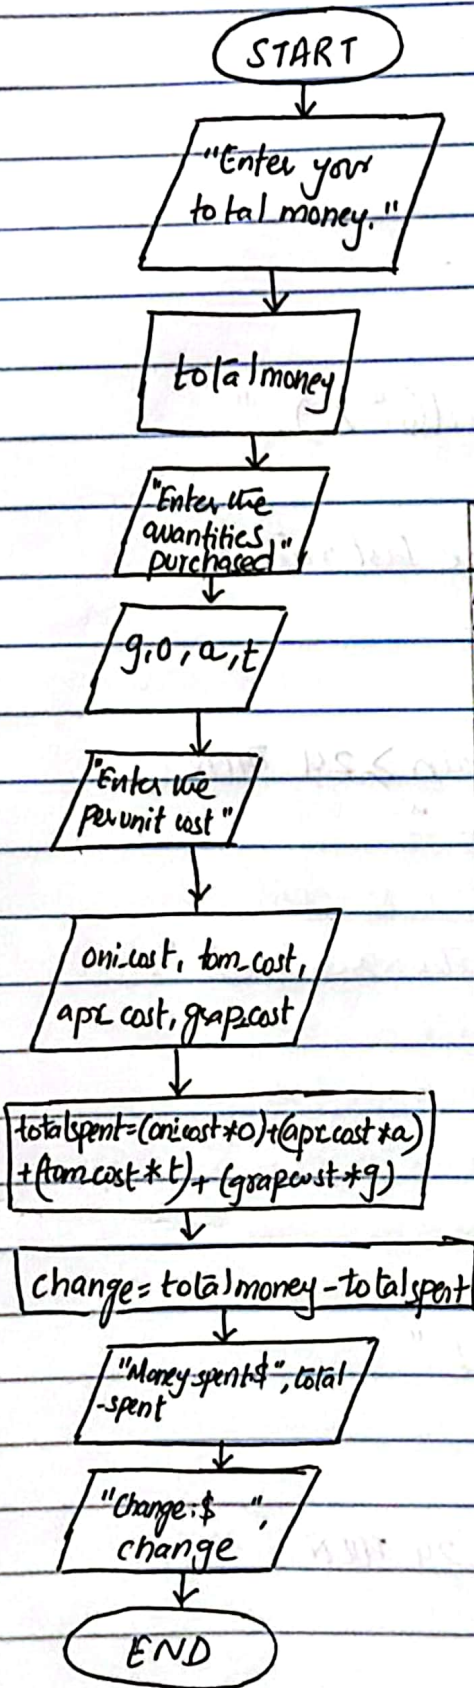 START
"Enter your
total money."
totalmoney
"Enter the
quantities
purchased"
g,o,a,t
"Enter the
per unit cost"
oni_cost, tom_cost,
apr_cost, grap_cost
totalspent=(oni_cost*o)+(apr_cost*a)
+(tom_cost*t)+(grap_cost*g)
change=totalmoney-totalspent
"Money spent:$", total
-spent
"Change:$ ",
change
END